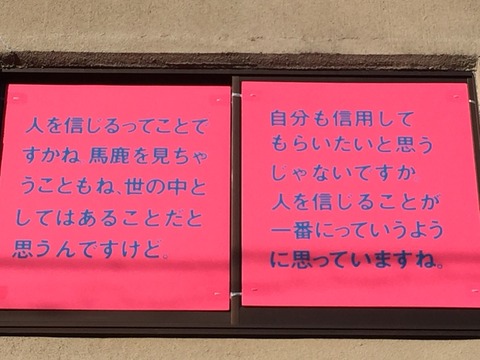 人を信じるってことで
すかね 馬鹿を見ちゃ
うこともね、世の中と
してはあることだと
思うんですけど。
自分も信用して
もらいたいと思う
じゃないですか
人を信じることが
一番にっていうよう
に思っていますね。